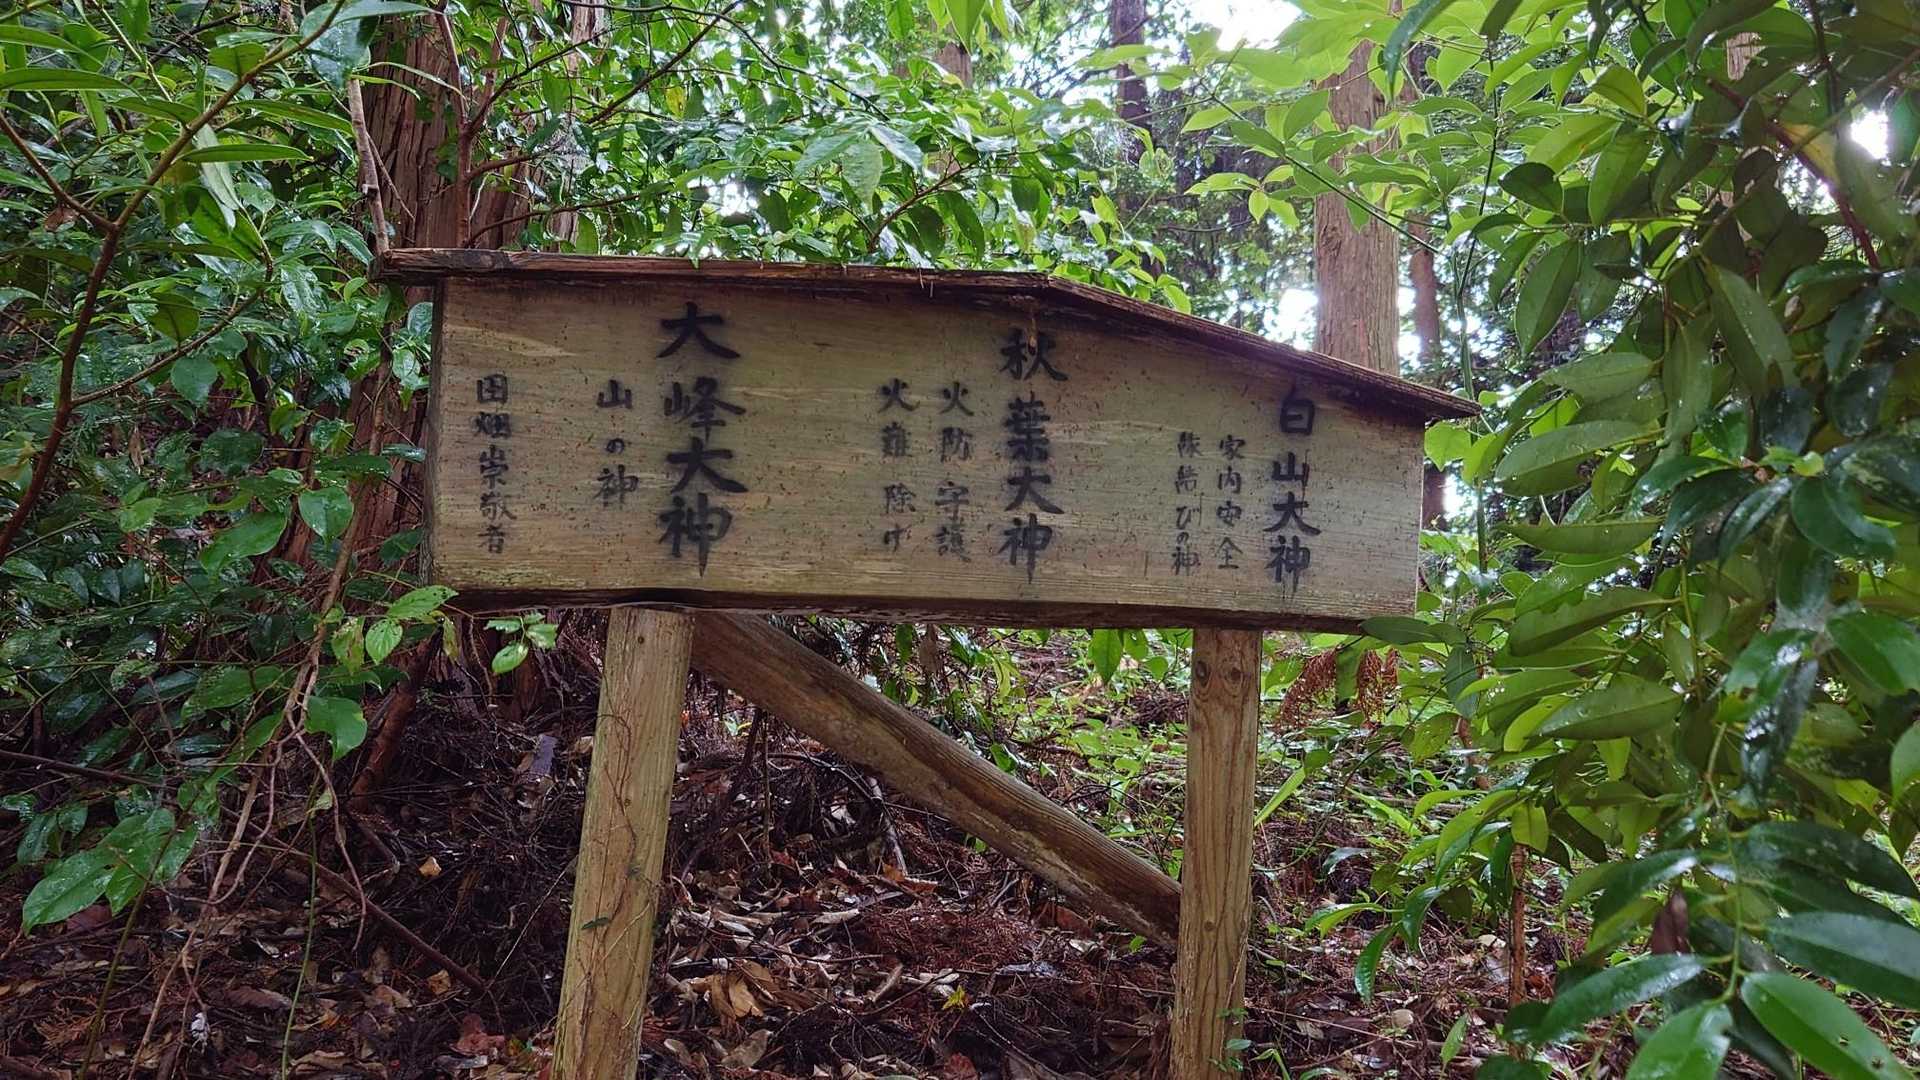 白山大神
家内安全
縁結びの神
秋葉大神
火防守護
火難除け
大峰大神
山の神
田畑崇敬者